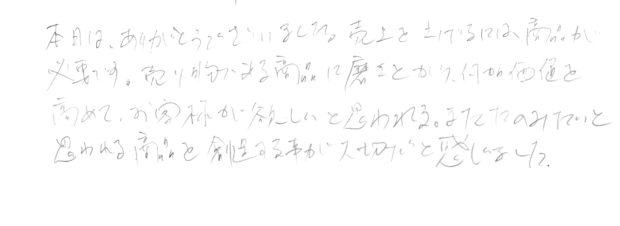 本日は、ありがとうございました。売上を上げるには、商品が
必要です。売り物である商品に磨きとかけ、付加価値を
高めて、お客様が欲しいと思われる。またたのみたいと
思われる商品を創造する事が大切だと感じました。